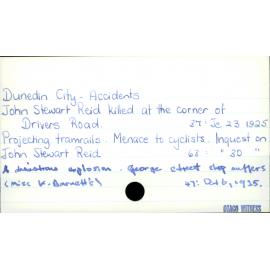 Dunedin City - Accidents
John Stewart Reid killed at the corner of
Drivers Road. 37: Je 23 1925
Projecting tramrails. Menace to cyclists. Inquest on
John Stewart Reid 63: " 30 "
A disastrous explosion. George street shop suffers
(Miss V. Barnett's) 47: Oct 6, 1925.
OTAGO WITNESS